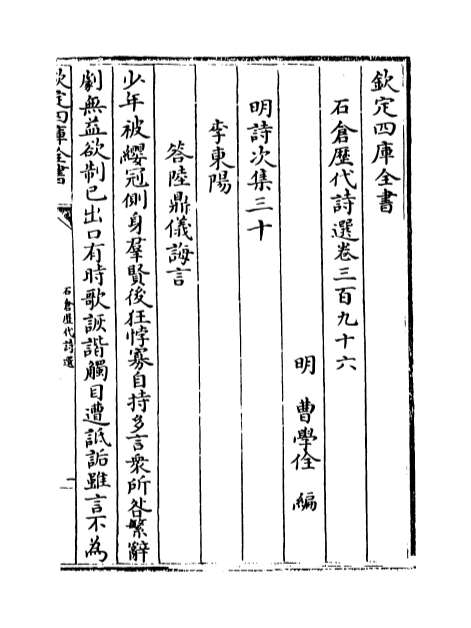 欽定四庫全書
石倉歴代詩選卷三百九十六
明 曹學佺 編
明詩次集三十
李東陽
答陸鼎儀誨言
少年被纓冠側身羣賢後狂悖寡自持多言衆所咎繁辭
劇無益欲制已出口有時歌詼諧觸目遭詆詬雖言不為
欽定四庫全書
石倉歴代詩選
一